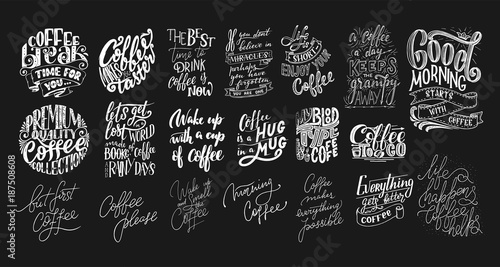 COFFEE
Break
TIME FOR
YOU
Coffee
THE BEST
TIME to
DRINK
COFFEE
is
NOW
If you don't
believe in
MIRACLES
perhaps
you have
forgotten
YOU ARE ONE
Life is
SHORT
ENJOY YOUR
Coffee
a Coffee
a day
KEEPS
the
grumpy
AWAY
Good
MORNING
STARTS
WITH
COFFEE
PREMIUM
QUALITY
Coffee
COLLECTION
let's get
lost
WORLD
made
BOOKS
and
RAINY
DAYS
Wake up
with a cup
of coffee
Coffee
is a HUG
in a
MUG
MY BLOOD
TYPE
is
COFFEE
Coffee
TO GO
but first
Coffee
Coffee
please
Wake up
and Smell
the
Coffee
morning
Coffee
Coffee
makes
everything
possible
Everything
gets better
with
COFFEE
life
happens
Coffee
helps
187508608